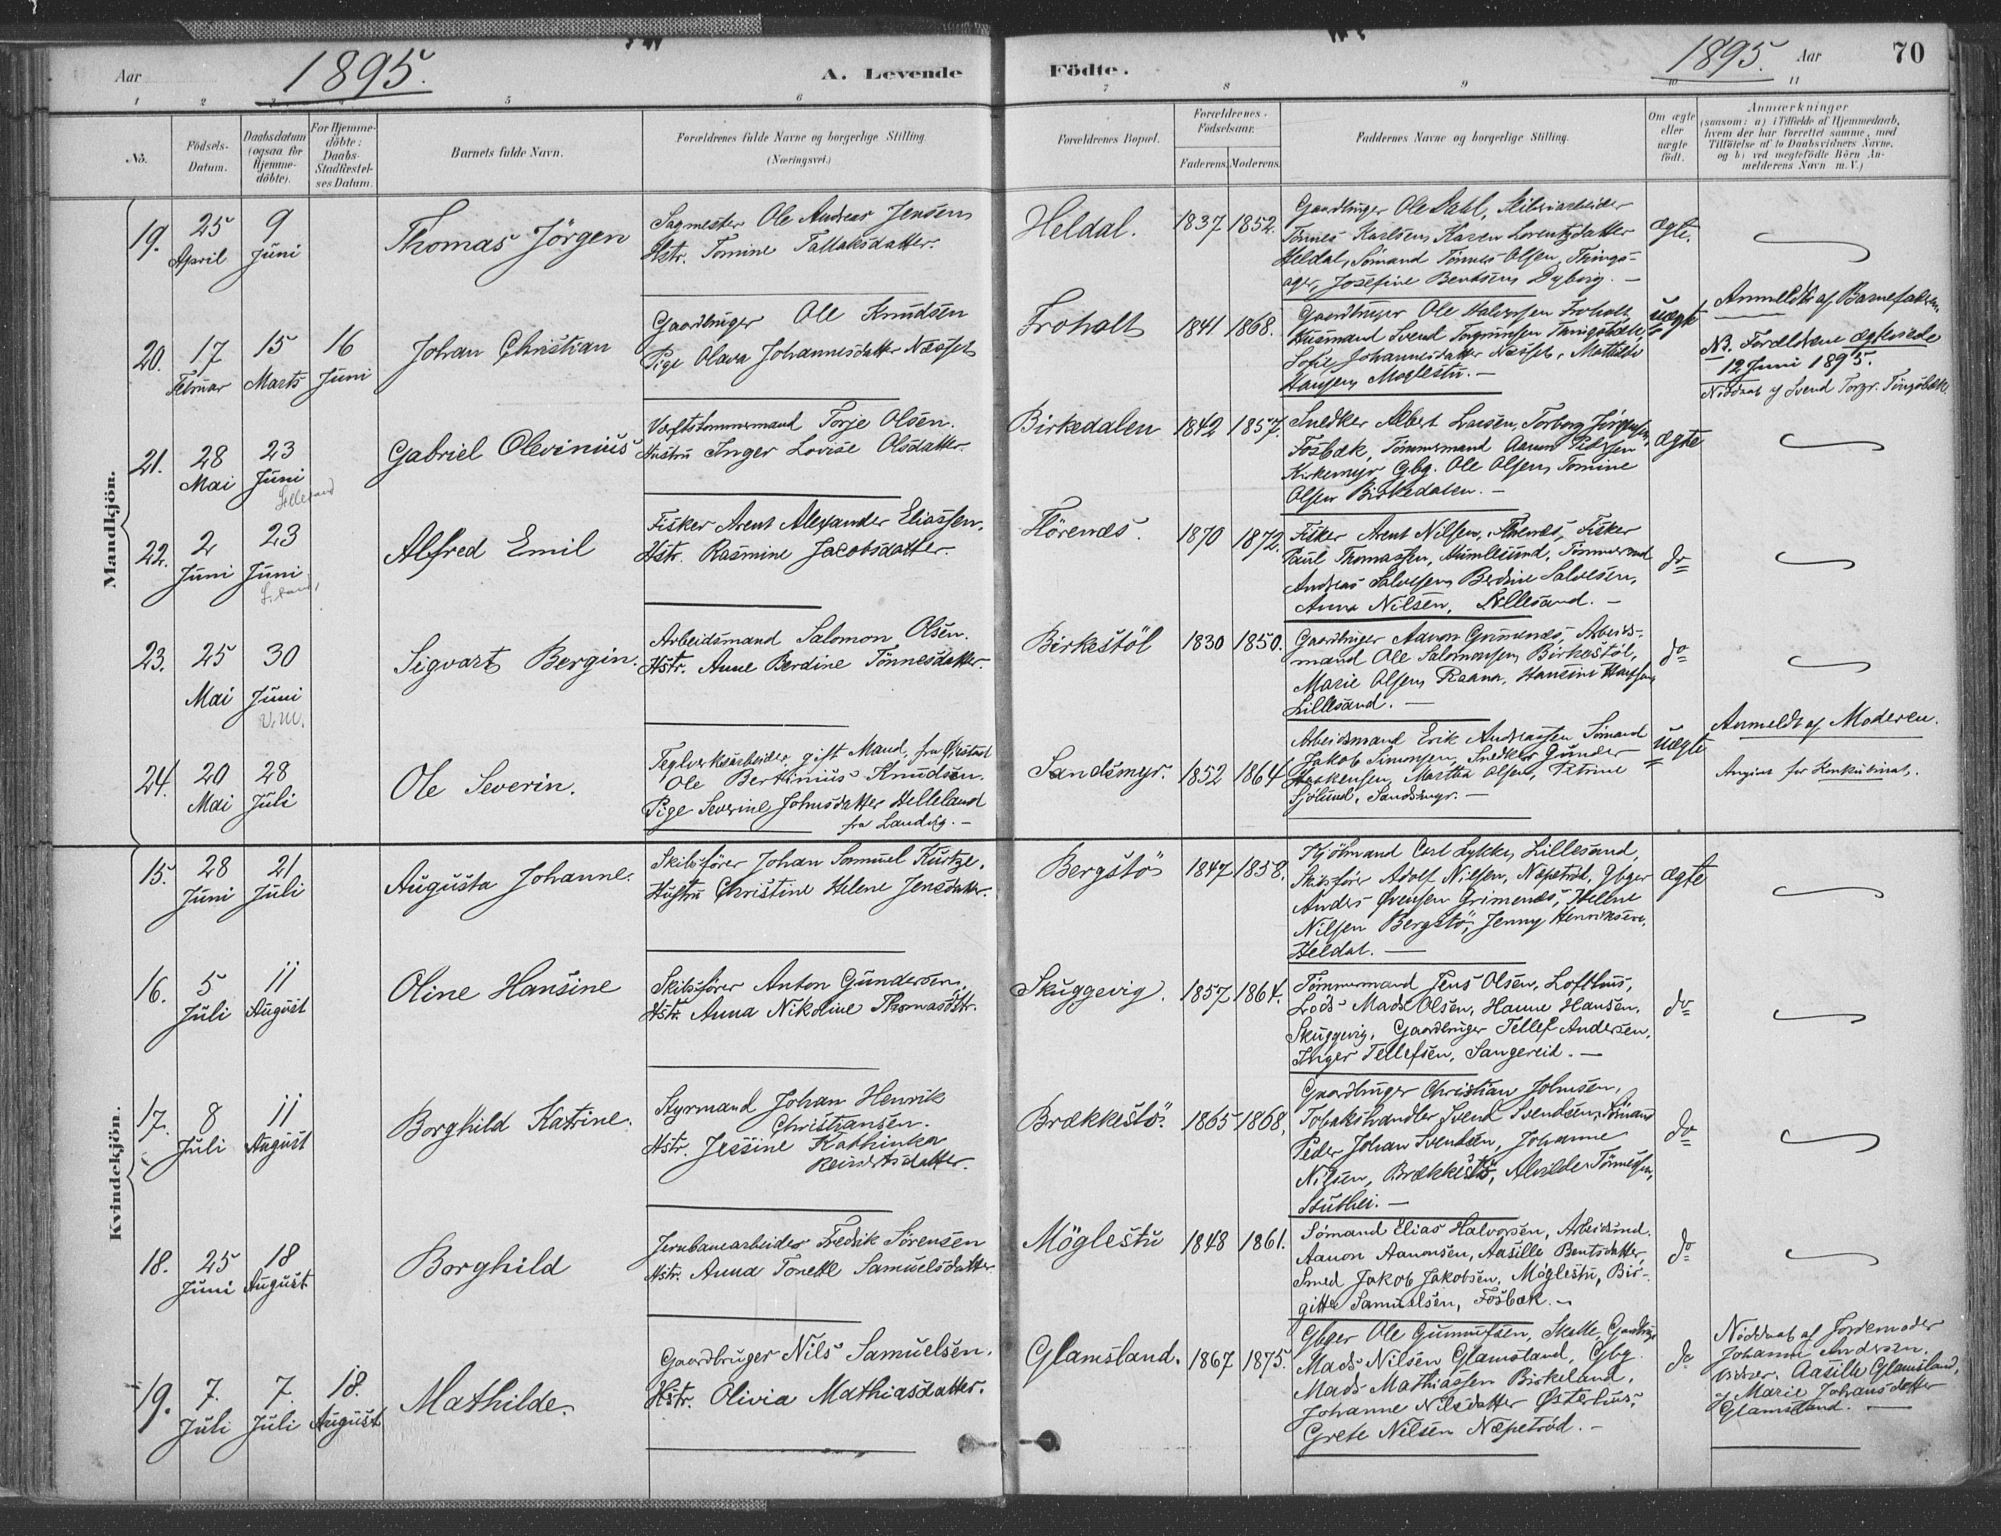 Aar 1895. A. Levende Födte. 1895. Aar 70
1 2 3 4 5 6 7 8 9 10 11
No. Födsels-Datum. Daabsdatum (ogsaa for Hjemme-döbte). For Hjemme-döbte: Daabs-Stadfæstel-ses Datum. Barnets fulde Navn. Forældrenes fulde Navne og borgerlige Stilling. (Næringsvei.) Forældrenes Bopæl. Forældrenes Födselsaar. Faderens. Moderens. Faddernes Navne og borgerlige Stilling. Om ægte eller uægte födt. Anmærkninger (saasom: a) i Tilfælde af Hjemmedaab, hvem der har forrettet samme, med Tilföielse af to Daabsvidners Navne, og b) ved uægtefödte Börn An-melderens Navn m. V.)
Mandkjön.
19. 25 April 9 Juni Thomas Jörgen
Sagmester Ole Andreas Jensen
Hstr. Tomine Tallaksdatter.
Heldal. 1837 1852.
Gaardbruger Ole Dahl,
Tönnes Karlsen, Karen Lorentzdatter
Heldal, Sömand Tönnes Olsen, Things-
ager, Josefine Bentsen Dyborg. —
ægte.
20. 17 Februar 15 Marts 16 Juni Johan Christian
Gaardbruger Ole Knudsen
Pige Olava Johannesdatter Næsset
Froholt 1841 1868.
Gaardbruger Ole Halvorsen Froholt,
Husmand Svend Torgrimsen Tingsbække,
Sofie Johannesdatter Næsset, Mathilde
Hansen, Moglestu. —
uægte
Anmeldt af Barnefaderen.
NB. Foreldrene ægteviede
12 Juni 1895.
Nöddøbt af Svend Torgr. Tingsbæk.
21. 28 Mai 23 Juni Lillesand Gabriel Olevinius
Værftstømmermand Torje Olsen.
Hustru Inger Lovise Olsdatter.
Birkedalen 1842 1857.
Snedker Albert Larsen, Torborg Jørgensen,
Fosbæk, Tömmermand Aanon Pedersen
Kirkemyr Gbg. Ole Olsen, Tomine
Olsen Birkedalen. —
ægte
22. 2 Juni 23 Juni Alfred Emil
Fisker Arent Alexander Eliassen.
Hstr. Rasmine Jacobsdatter.
Flörenæs. 1870 1872.
Fisker Arent Nilsen, Florenæs, Fisker
Paul Thomassen, Humlesund, Tömmermand
Andreas Salvesen, Berdine Salvesen,
Anna Nilsen, Lillesand. —
do
23. 25 Mai 30 Juni V.M. Sigvart Bergin.
Arbeidsmand Salomon Olsen.
Hstr. Anne Berdine Tönnesdatter.
Birkestöl 1830 1850.
Gaardbruger Aanon Grimenæs, Arbeids-
mand Ole Salomonsen, Birkestöl,
Marie Olsen Raana, Hansine Hansen,
Lillesand. —
do
24. 20 Mai 28 Juli Ole Severin.
Teglverksarbeider, gift Mand, fra Öxstad
Ole Berthinius Knudsen.
Pige Severine Johnsdatter Helleland
fra Landvig. —
Sandsmyr. 1852 1864
Arbeidsmand Erik Andreassen Sömand
Jakob Simonsen, Snedker Gunder
Haakensen, Martha Olsen, Petrine
Sjölund, Sandsmyr. —
uægte
Anmeldt af Moderen.
Angivet for Konkubinat.
Kvindekjön.
15. 28 Juni 21 Juli Augusta Johanne.
Skibsförer Johan Samuel Kurtze.
Hustru Christine Helene Jensdatter.
Bergstö 1847 1858.
Kjöbmand Carl Lykke, Lillesand,
Skibsförer Adolf Nilsen, Næpetröd, Gbger
Anders Evensen Grimenæs, Helene
Nilsen Bergstö, Jenny Henriksen,
Heldal. —
ægte
16. 5 Juli 11 August Oline Hansine
Skibsförer Anton Gundersen,
Hstr. Anna Nikoline Thomasdtr.
Skuggevig. 1857 1864.
Tömmermand Jens Olsen, Lofthus,
Lods Mads Olsen, Hanne Hansen,
Skuggevig, Gaardbruger Tellef Andersen,
Inger Tellefsen, Sangereid. —
do
17. 8 Juli 11 August Borghild Katrine.
Styrmand Johan Henrik
Christiansen.
Hstr. Jessine Kathinka
Reinertsdatter.
Brækkestö. 1865 1868,
Gaardbruger Christian Johnsen,
Tobakshandler Svend Svendsen, Sömand
Peder Johan Svendsen, Johanne
Nilsen, Brækkestö, Alvilde Tönnesen,
Stuthei. —
do
18. 25 Juni 18 August Borghild
Jernbanearbeider Fredrik Sörensen
Hstr. Anna Tonette Samuelsdatter
Möglestu 1848 1861.
Sömand Elias Halvorsen, Arbeidsmd.
Aanon Aanonsen, Aasille Bentsdatter,
Smed Jakob Jakobsen, Möglestu, Bir-
gitte Samuelsen, Fosbæk. —
do
19. 7. Juli 7. Juli 18. August Mathilde.
Gaardbruger Nils Samuelsen.
Hstr. Olivia Mathiasdatter.
Glamsland. 1867 1875.
Gbger Ole Gunnufsen, Gaardbrugr
Mads Nilsen Glamsland, Gbg.
Mads Mathiassen Birkeland,
Johanne Nilsdatter Österhus,
Grete Nilsen Næpetröd. —
do
Nöddøbt af Jordemoder
Johanne Andersen.
Vidner. Aasille Glamsland,
Marie Johansdatter
Glamsland. —